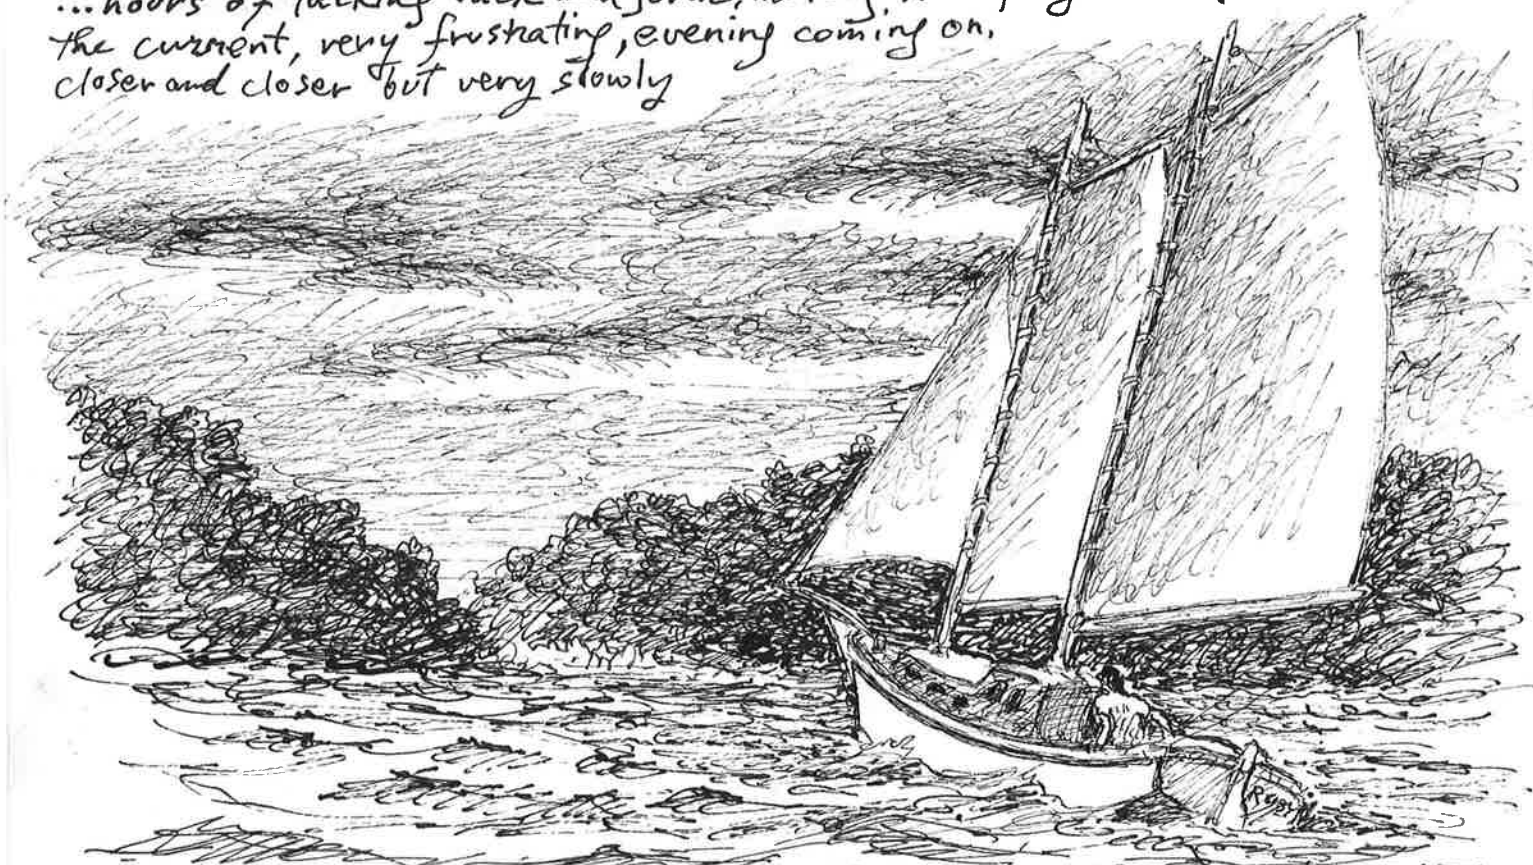 ...hours of tacking back
the current, very frustrating, evening coming on,
closer and closer but very slowly
RUBY